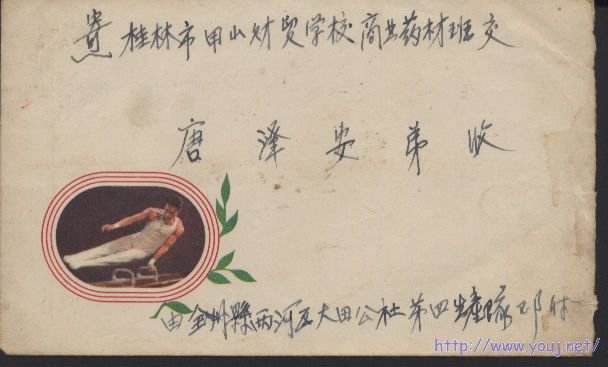 寄 桂林市甲山财贸学校商业药材班交
唐泽安弟收
由全州縣两河区大田公社第四生产隊邓付
http://www.youj.net/